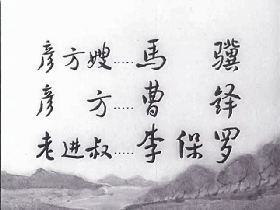 彦方嫂.....馬驥
彦方.....曹鐸
老进叔.....李保罗